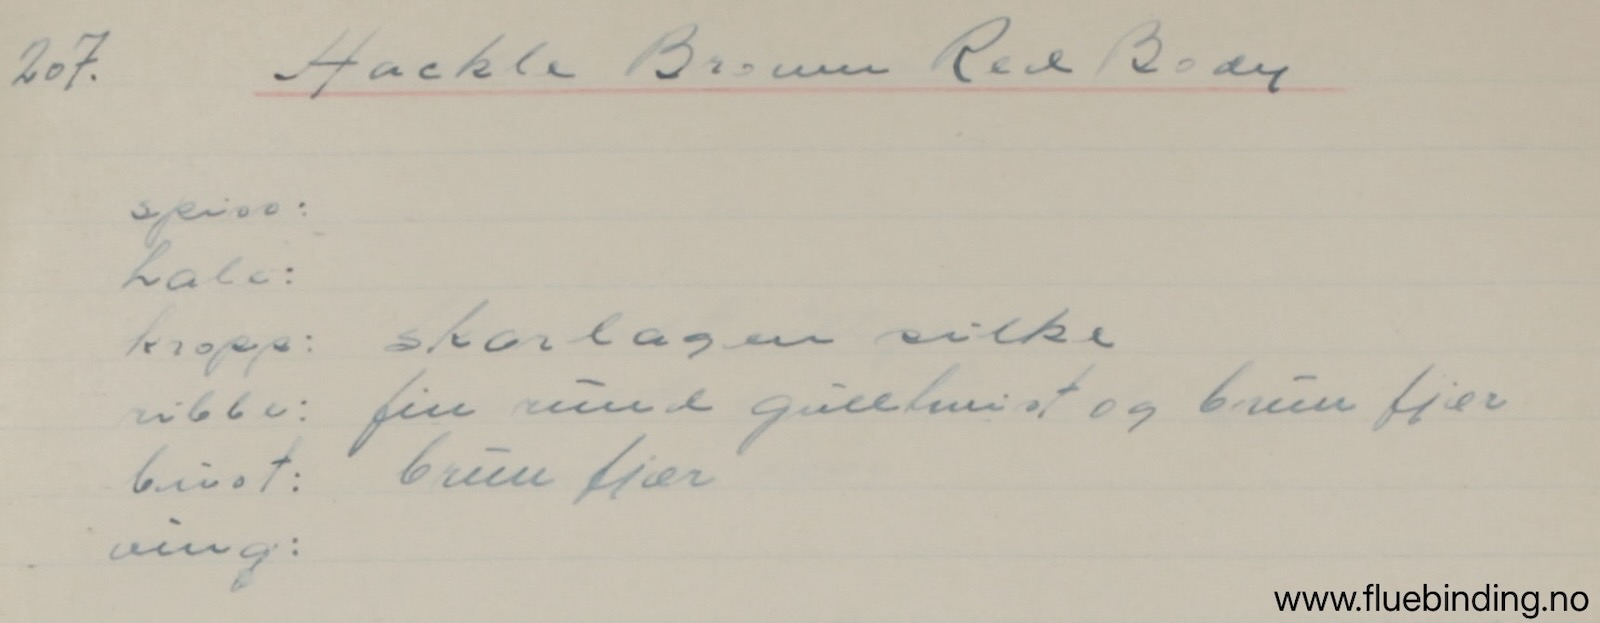 207. Hackle Brown Red Body
spiss:
hale:
kropp: skarlagen silke
ribbe: fin rund gulltwist og brun fjær
bust: brun fjær
ving:
www.fluebinding.no